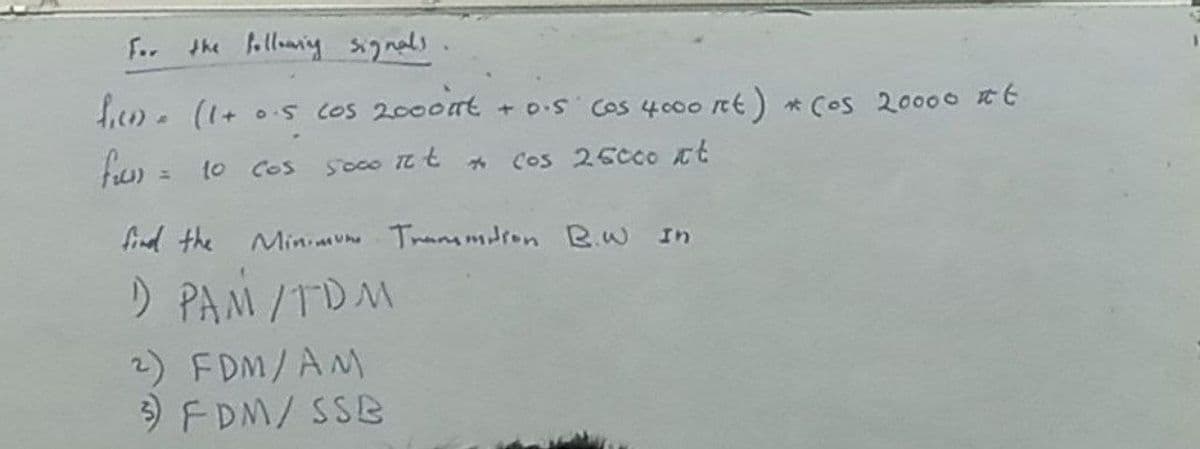 For the following signals.
f₁(t) = (1 + 0.5 cos 2000πt + 0.5 cos 4000 πt) * cos 20000 πt
f₂(t) = 10 cos 5000 πt * cos 25000 πt
find the Minimum Transmission B.W In
1) PAM / TDM
2) FDM / AM
3) FDM / SSB